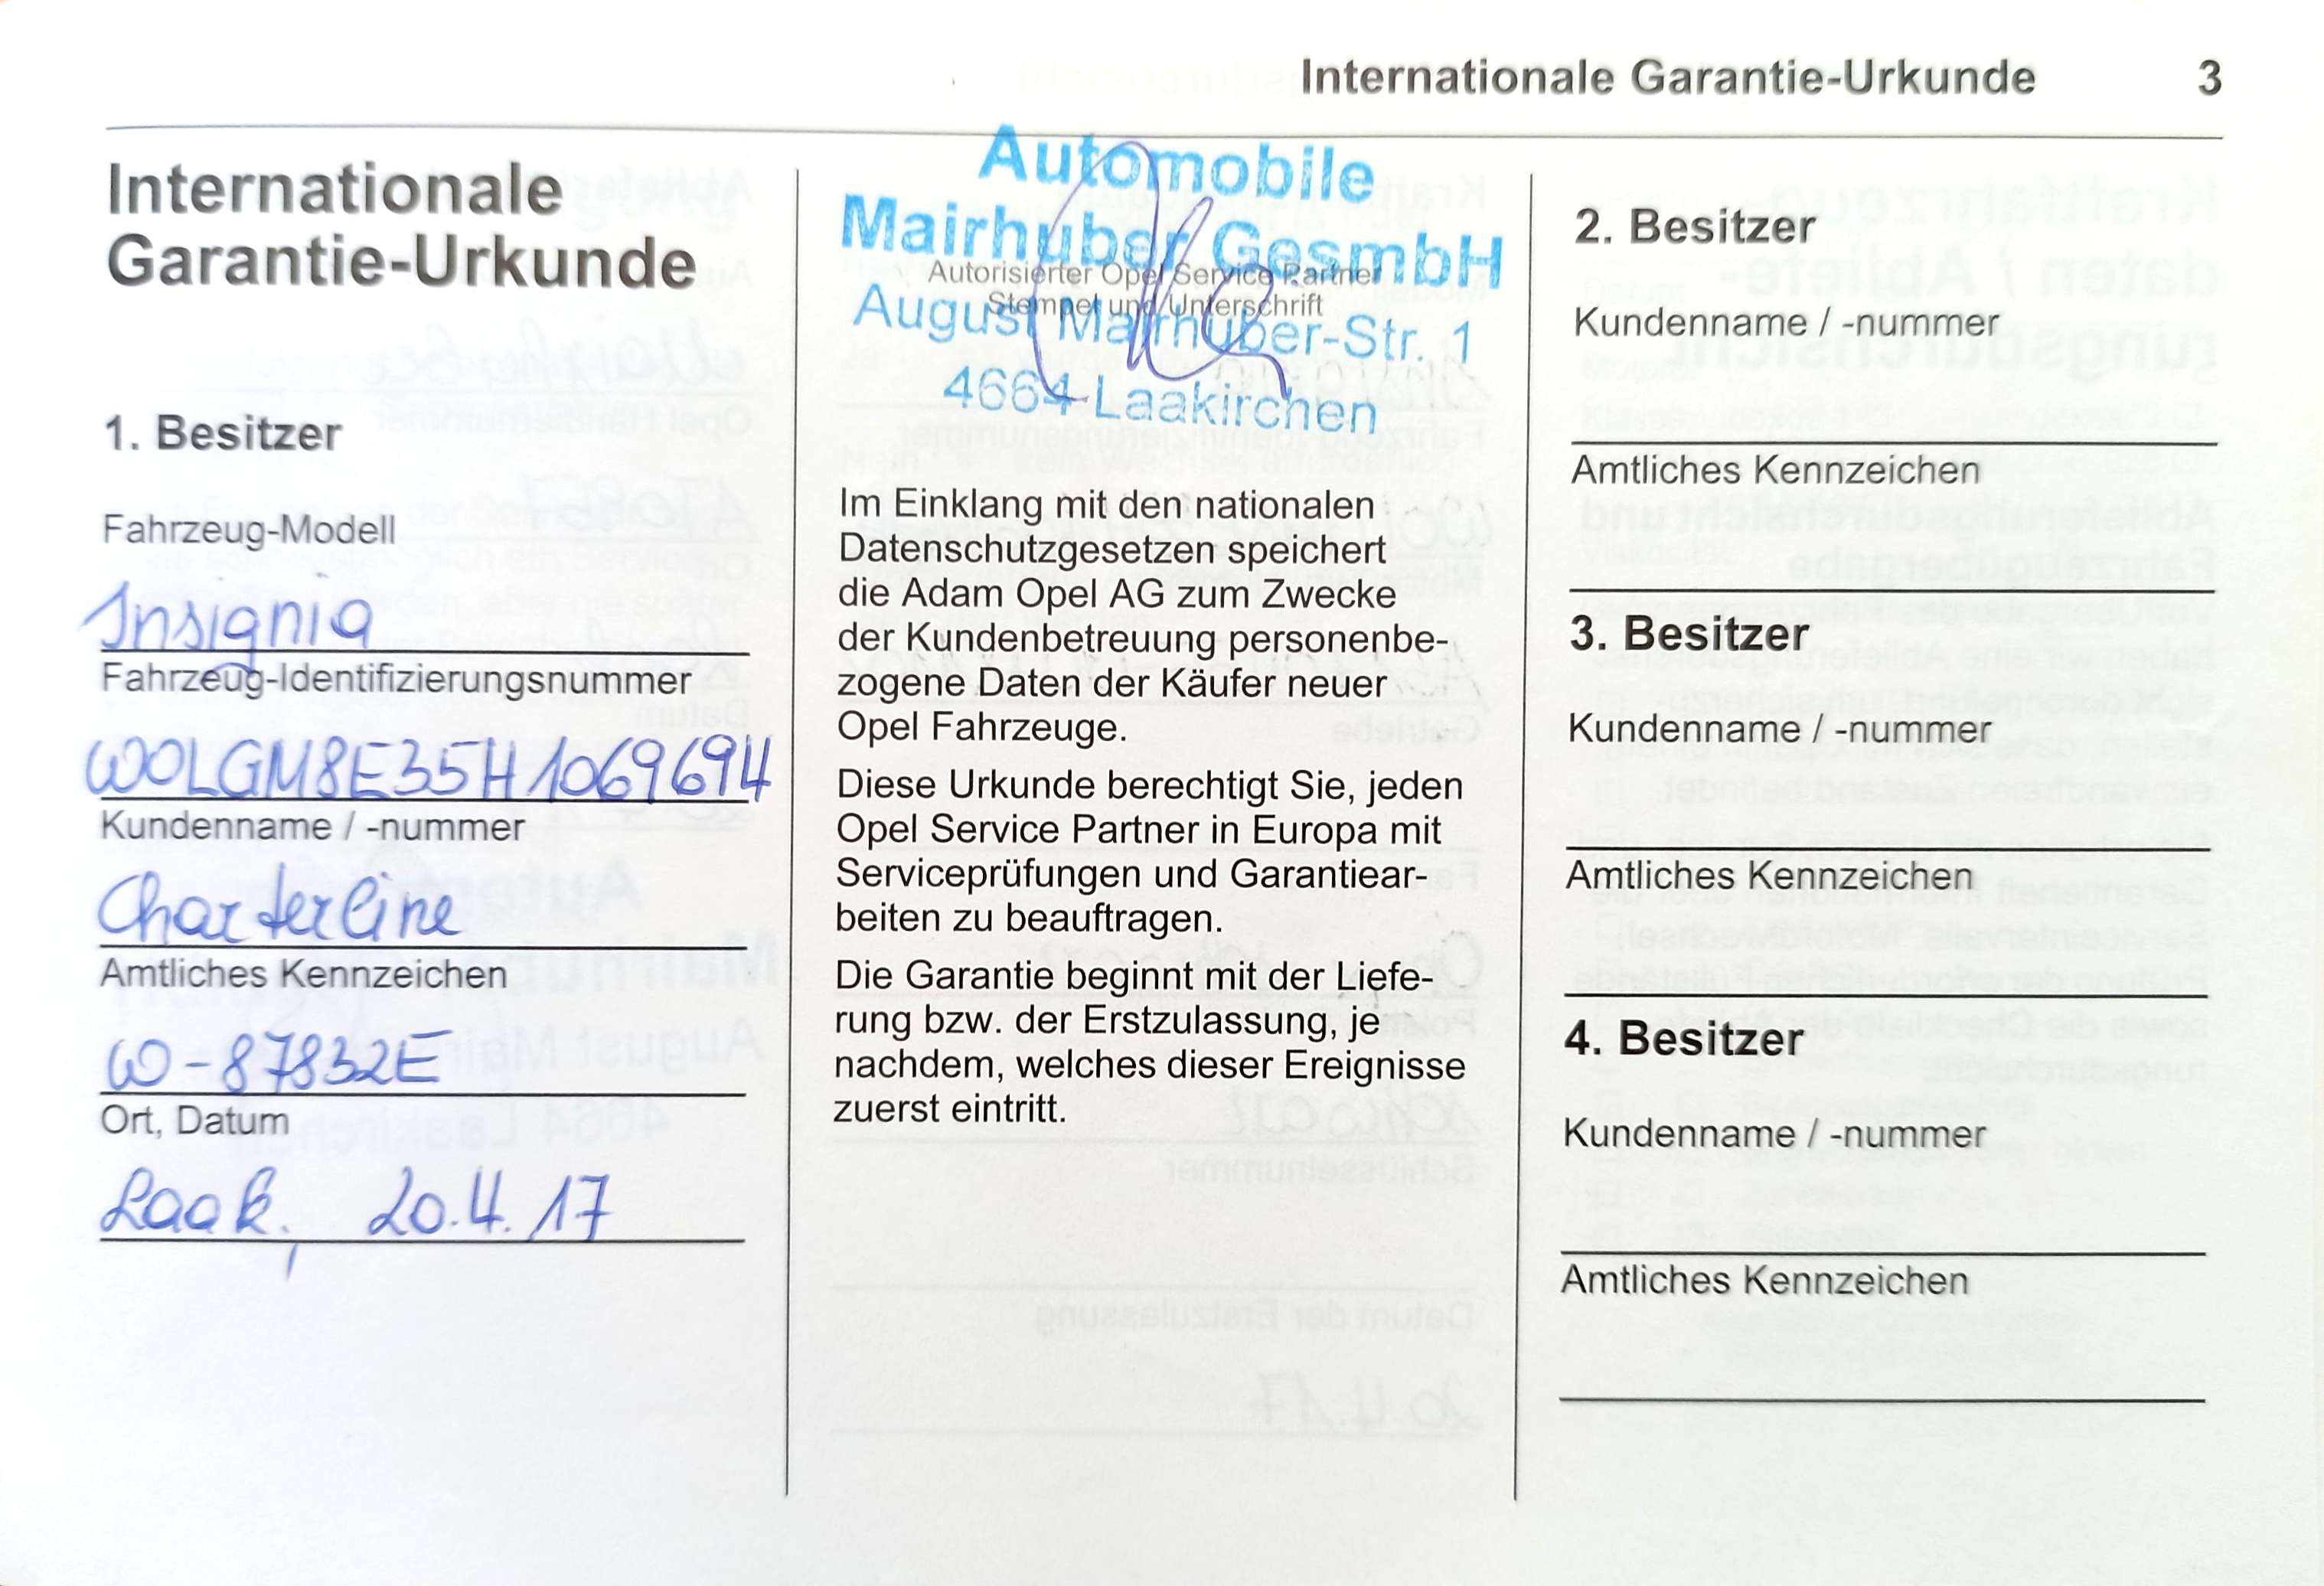 Internationale Garantie-Urkunde 3
Internationale
Garantie-Urkunde
1. Besitzer
Fahrzeug-Modell
Insignia
Fahrzeug-Identifizierungsnummer
W0LGM8E35H1069694
Kundenname / -nummer
Charterline
Amtliches Kennzeichen
W-87832E
Ort, Datum
Laak., 20.4.17
Automobile
Mairhuber GesmbH
Autorisierter Opel Service Partner
Stempel und Unterschrift
August Mairhuber-Str. 1
4664 Laakirchen
Im Einklang mit den nationalen
Datenschutzgesetzen speichert
die Adam Opel AG zum Zwecke
der Kundenbetreuung personenbe-
zogene Daten der Käufer neuer
Opel Fahrzeuge.
Diese Urkunde berechtigt Sie, jeden
Opel Service Partner in Europa mit
Serviceprüfungen und Garantiear-
beiten zu beauftragen.
Die Garantie beginnt mit der Liefe-
rung bzw. der Erstzulassung, je
nachdem, welches dieser Ereignisse
zuerst eintritt.
2. Besitzer
Kundenname / -nummer
Amtliches Kennzeichen
3. Besitzer
Kundenname / -nummer
Amtliches Kennzeichen
4. Besitzer
Kundenname / -nummer
Amtliches Kennzeichen